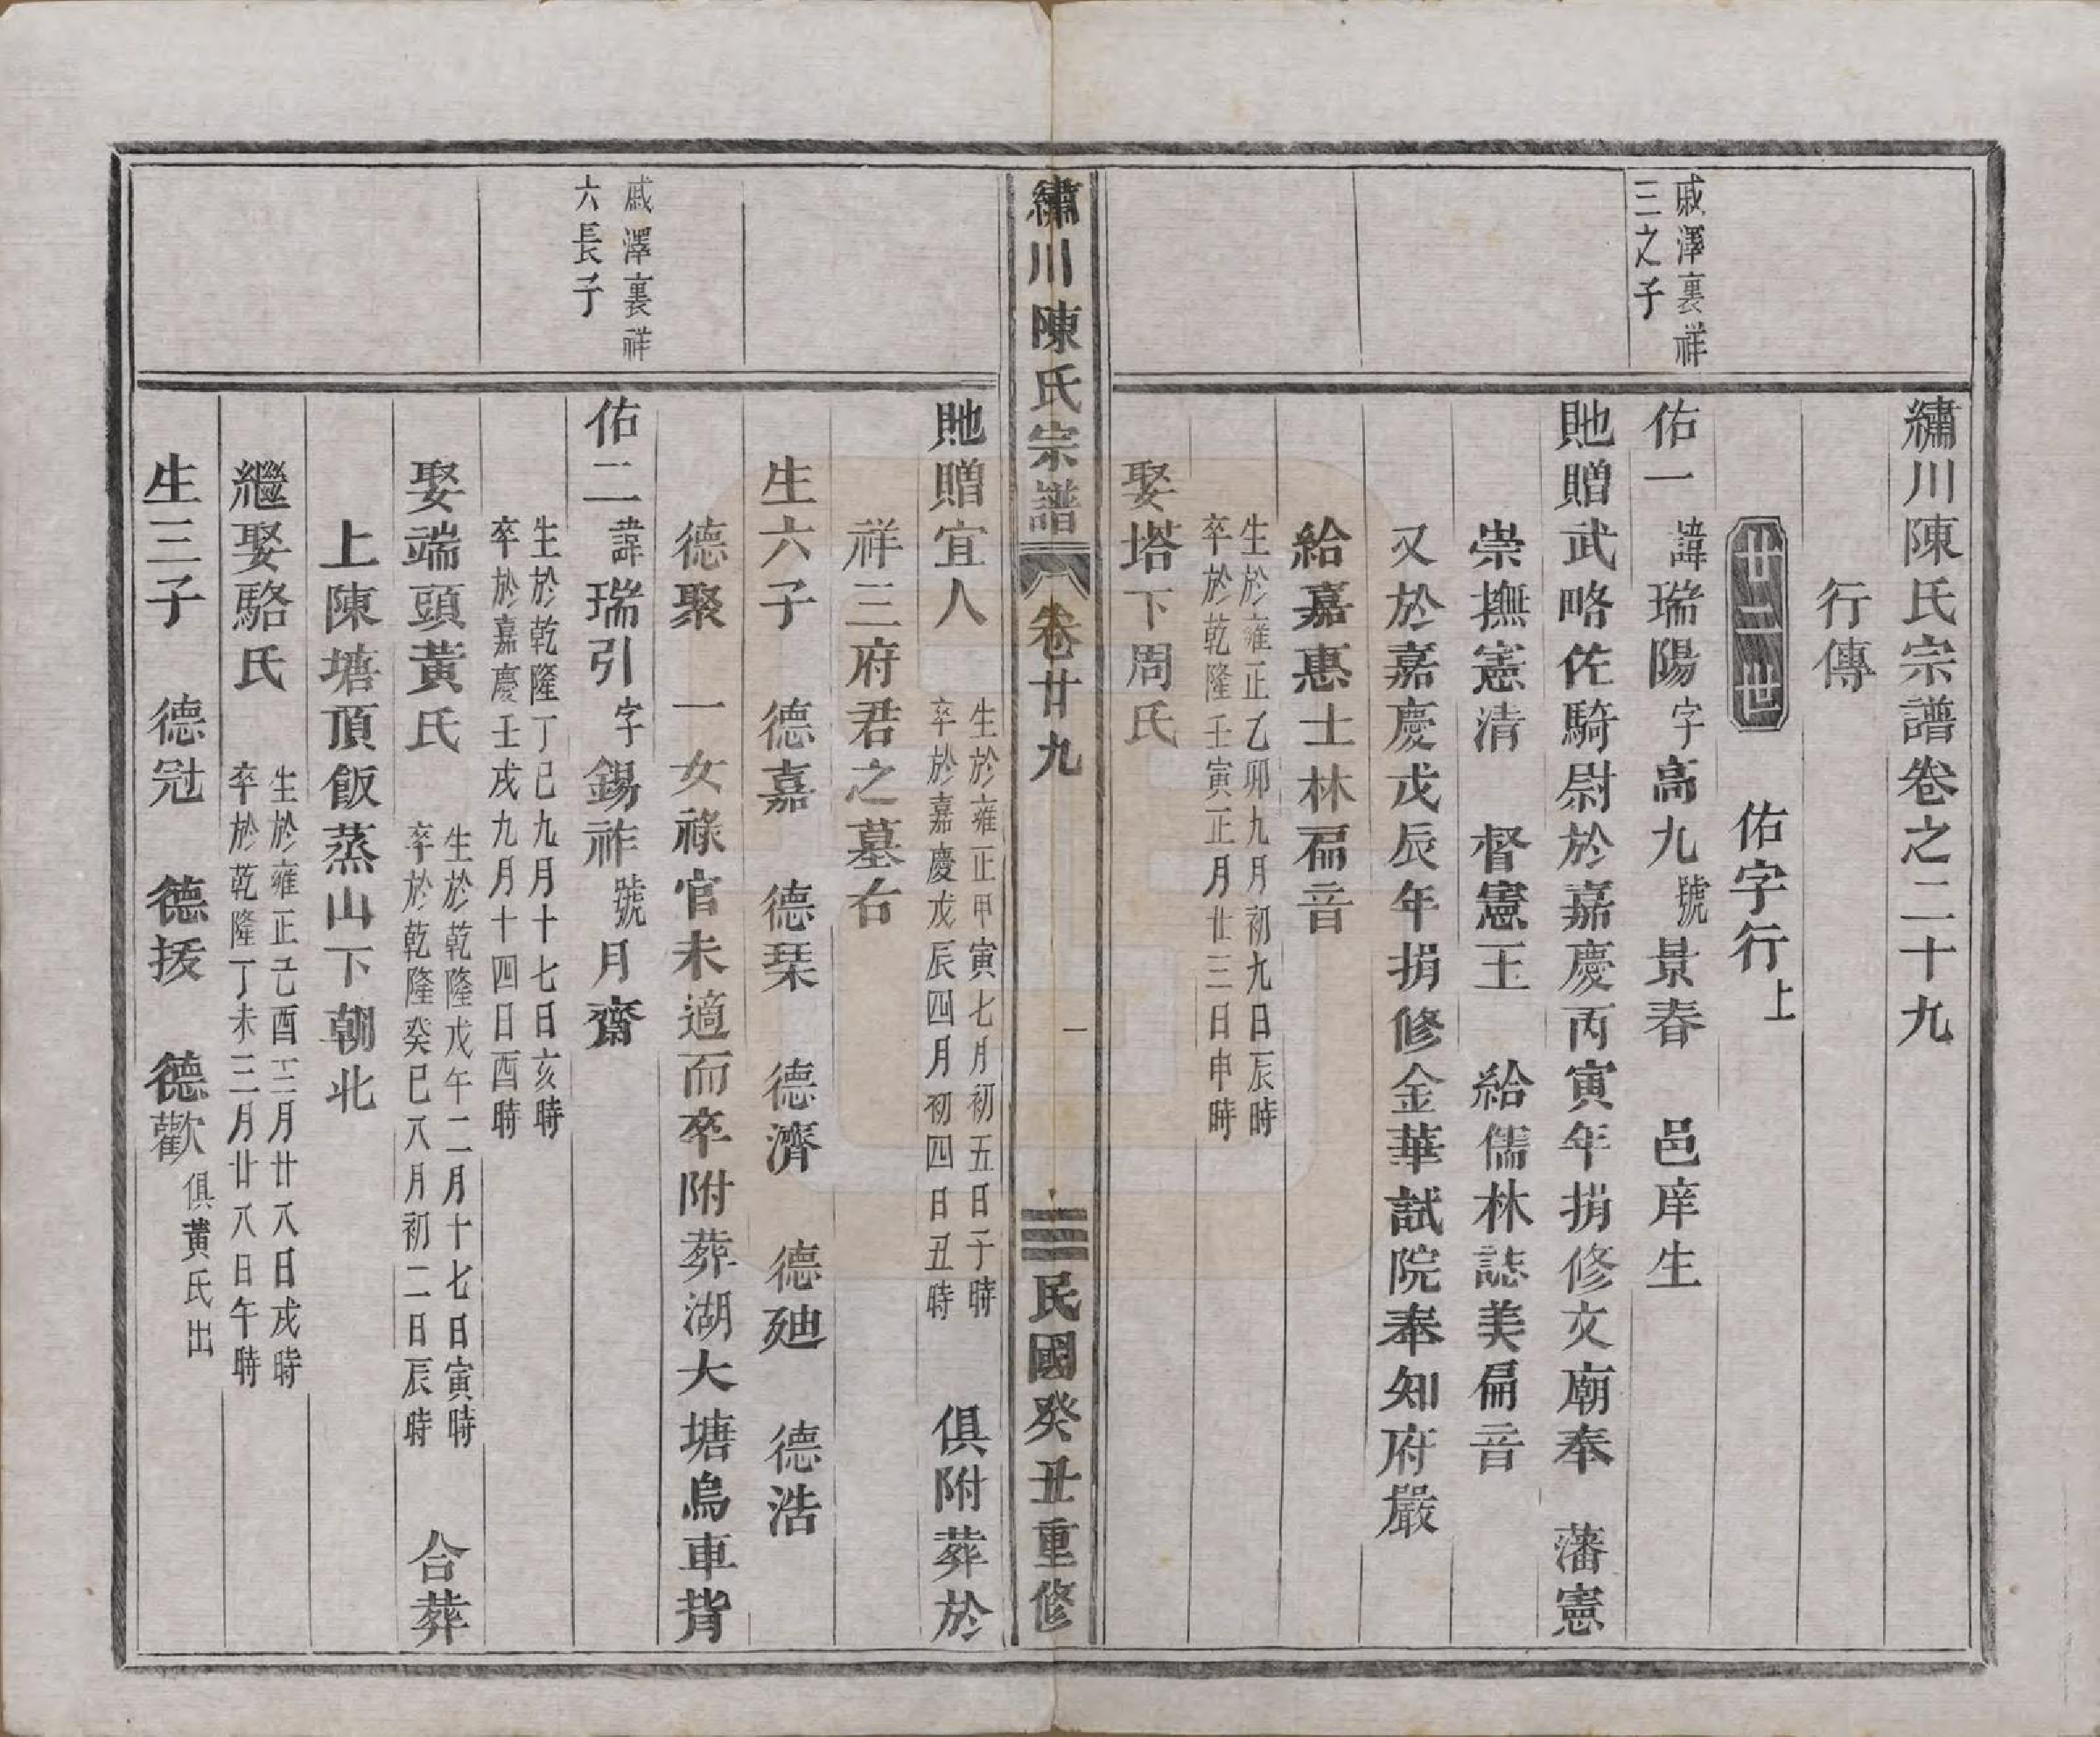 繡川陳氏宗譜卷之二十九
行傳
廿二世
佑字行上
戚澤裏祥
三之子
佑一諱瑞陽字高九號景春 邑庠生
貤贈武略佐騎尉於嘉慶丙寅年捐修文廟奉 藩憲
崇撫憲清 督憲王 給儒林誌美匾音
又於嘉慶戊辰年捐修金華試院奉知府嚴
給嘉惠士林匾音
生於雍正乙卯九月初九日辰時
卒於乾隆壬寅正月廿三日申時
娶塔下周氏
繡川陳氏宗譜 卷廿九 一 民國癸丑重修
貤贈宜人
生於雍正甲寅七月初五日子時
卒於嘉慶戊辰四月初四日丑時
俱附葬於
祥三府君之墓右
生六子 德嘉 德琹 德濟 德廸 德浩
德聚 一女祿官未適而卒附葬湖大塘烏車背
戚澤裏祥
六長子
佑二諱瑞引字錫祚號月齋
生於乾隆丁巳九月十七日亥時
卒於嘉慶壬戌九月十四日酉時
娶端頭黃氏
生於乾隆戊午二月十七日寅時
卒於乾隆癸巳八月初二日辰時
合葬
上陳塘頂飯蒸山下朝北
繼娶駱氏
生於雍正己酉十二月廿八日戌時
卒於乾隆丁未三月廿八日午時
生三子 德冠 德拔 德歡
俱黃氏出